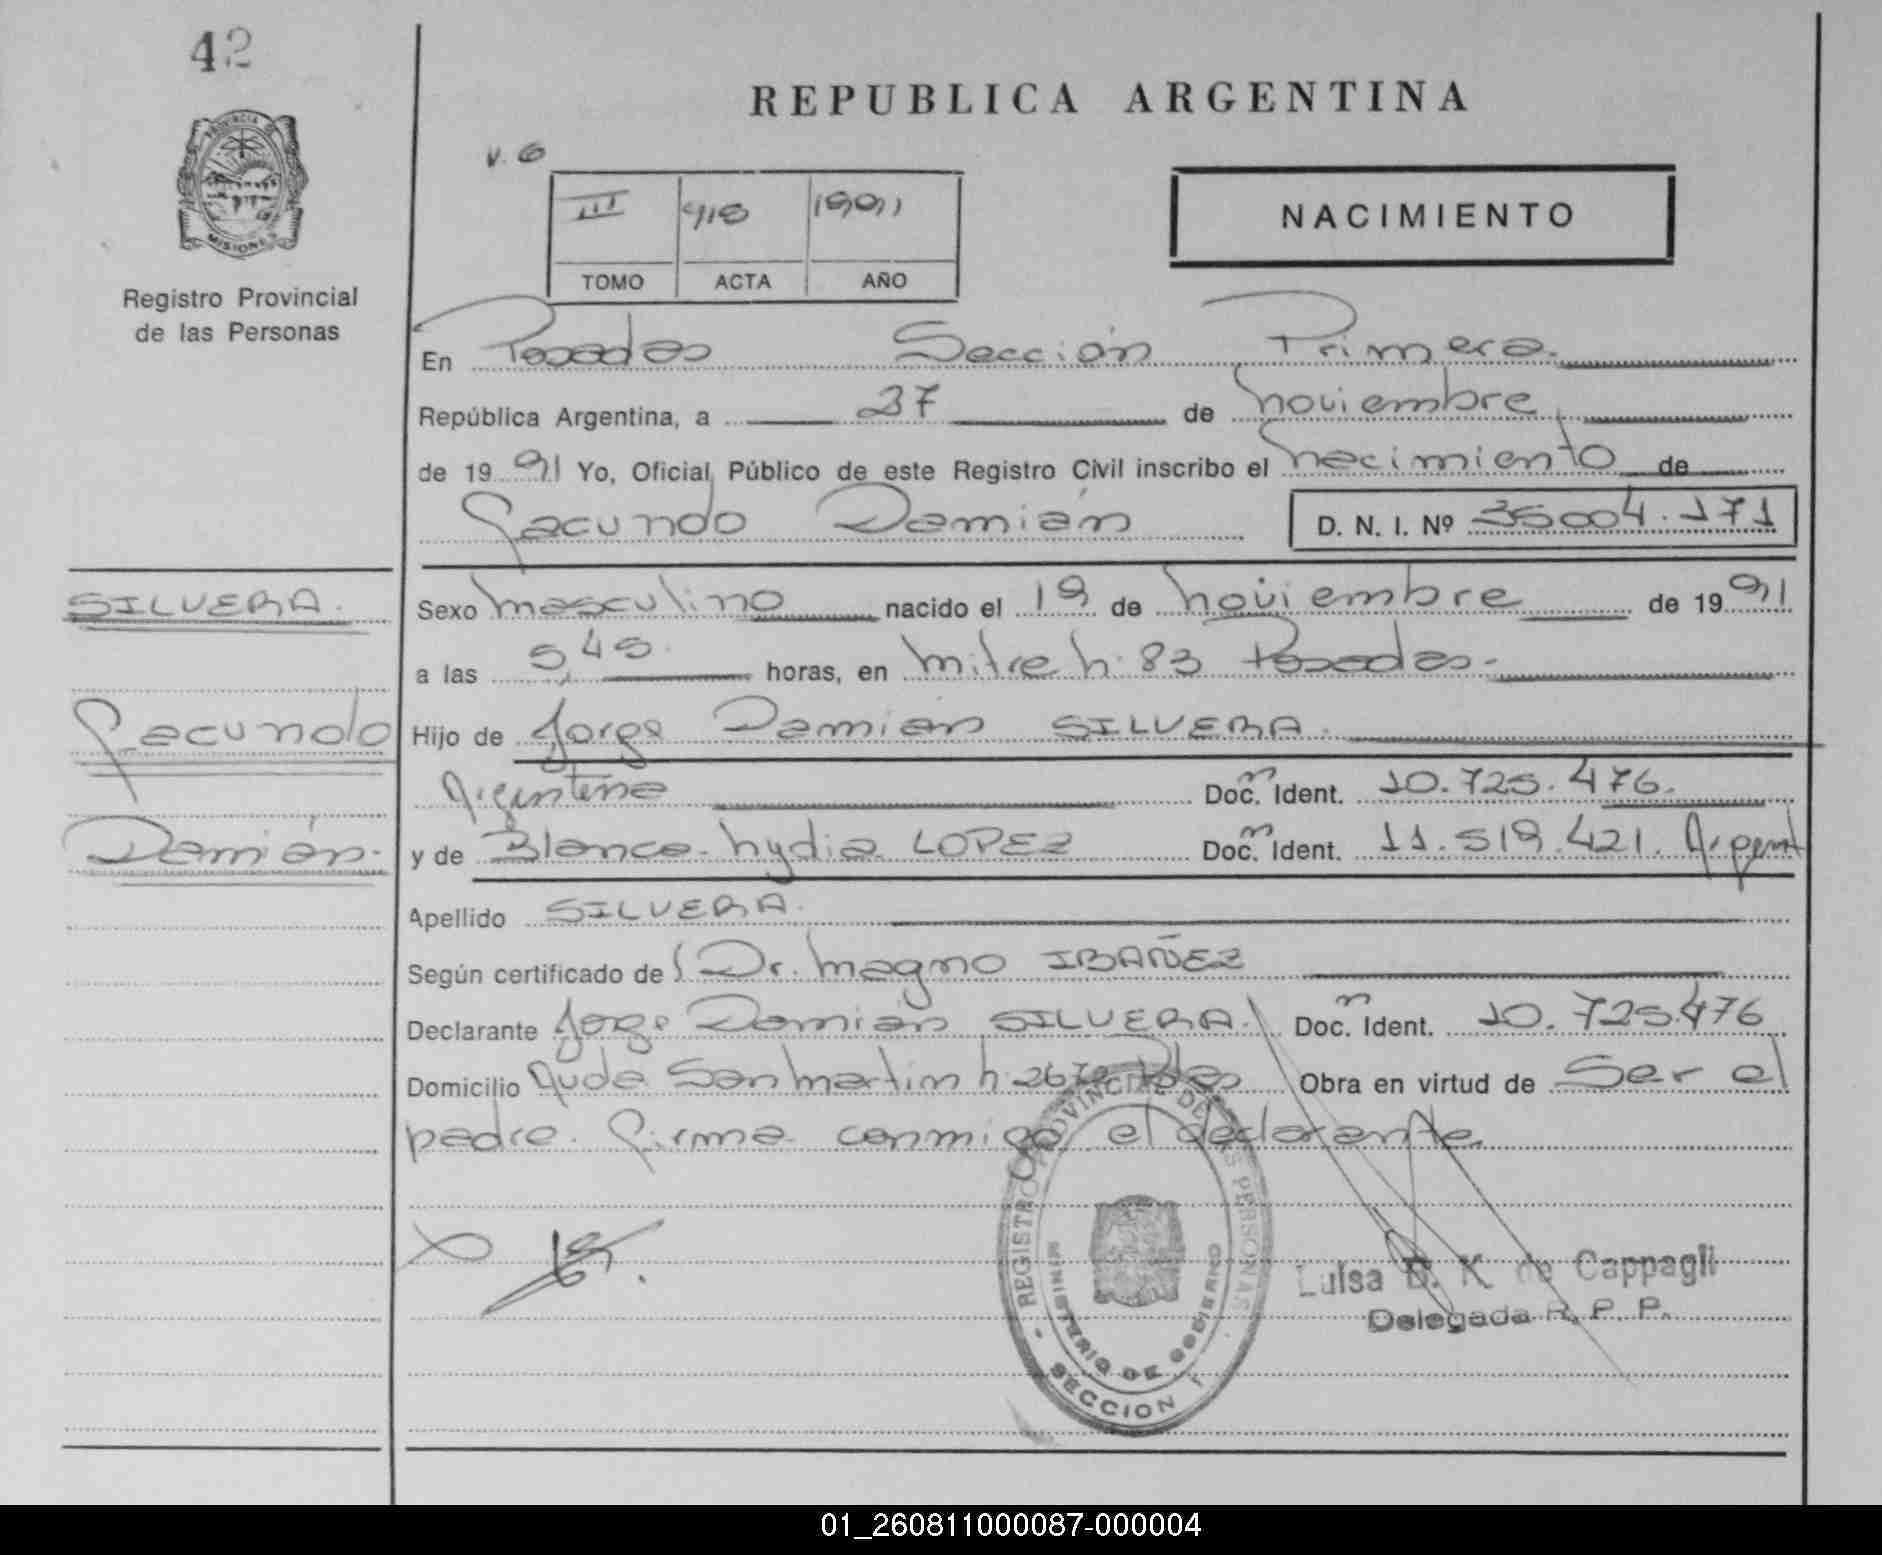 42
REPUBLICA ARGENTINA
V. 6
III 418 1991
TOMO ACTA AÑO
NACIMIENTO
PROVINCIA DE MISIONES
Registro Provincial
de las Personas
En Posadas Sección Primera.
República Argentina, a 27 de noviembre
de 1991 Yo, Oficial Público de este Registro Civil inscribo el nacimiento de
Facundo Damián D. N. I. Nº 35004.171
SILVERA.
Sexo masculino nacido el 19 de noviembre de 1991
a las 5,45 horas, en Mitre n: 83 Posadas.
Facundo
Hijo de Jorge Damián SILVERA.
Argentina Doc. Ident. 10.725.476.
Damián.
y de Blanca Lydia LOPEZ Doc. Ident. 11.519.421. Argent
Apellido SILVERA.
Según certificado de Dr. Magno IBAÑEZ
Declarante Jorge Damián SILVERA. Doc. Ident. 10.725476
Domicilio Avda San Martín n: 267 Pdas Obra en virtud de Ser el
padre. Firma conmigo el declarante.
REGISTRO PROVINCIAL DE LAS PERSONAS
MINISTERIO DE GOBIERNO
SECCION 1
Luisa D. K. de Cappagli
Delegada R. P. P.
01_260811000087-000004